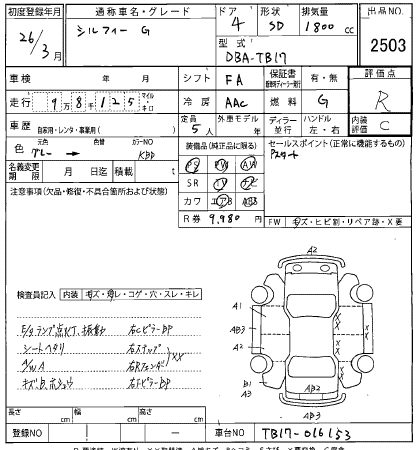 初度登録年月 通称車名・グレード ドア 形状 排気量 出品NO
26/3月 シルフィー G 4 SD 1800cc 2503
型式 DBA-TB17
車検 年 月 シフト FA 保証書 有・無 評価点
走行 9万8千125 マイル・キロ 冷房 AAC 燃料 G R
車歴 自家用・レンタ・事業用( ) 定員 5人 外車モデル 年 ディーラー 並行 ハンドル 左・右 内装評価 C
色 元色 グレー → 色替 カラーNO KAD 装備品(純正品に限る) セールスポイント(正常に機能するもの)
PS PW AW Pスタート
名義変更期限 月 日迄 積載 t SR TV ナビ
注意事項(欠品・修復・不具合箇所および状態) カワ エアB ABS
R券 9,980円 FW キズ・ヒビ割・リペア跡・X要
検査員記入 内装 キズ・汚レ・コゲ・穴・スレ・キレ
E/gランプ点灯、振動 右CピラーBP
シートヘタリ 右ステップ XX
A/W A 右Rフェンダー
右FピラーBP
A2
A1
AB3
A2
B1
A3
AB2
AB3
XX
XX
長さ cm 幅 cm 高さ cm
登録NO ― 車台NO TB17-016153